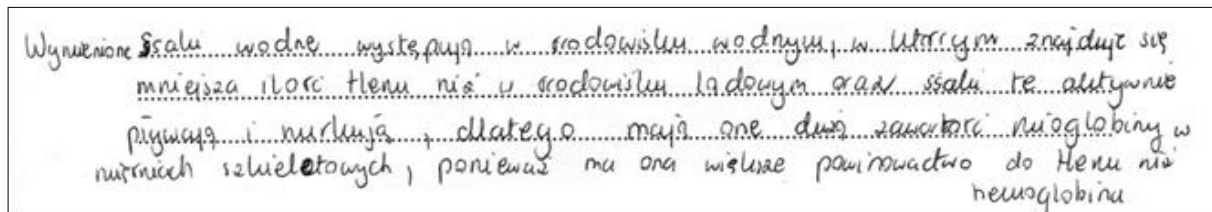 Wymienione ssaki wodne występują w środowisku wodnym, w którym znajduje się
mniejsza ilość tlenu niż w środowisku lądowym oraz ssaki te aktywnie
pływają i nurkują, dlatego mają one dużą zawartość mioglobiny w
mięśniach szkieletowych, ponieważ ma ona większe powinowactwo do tlenu niż
hemoglobina